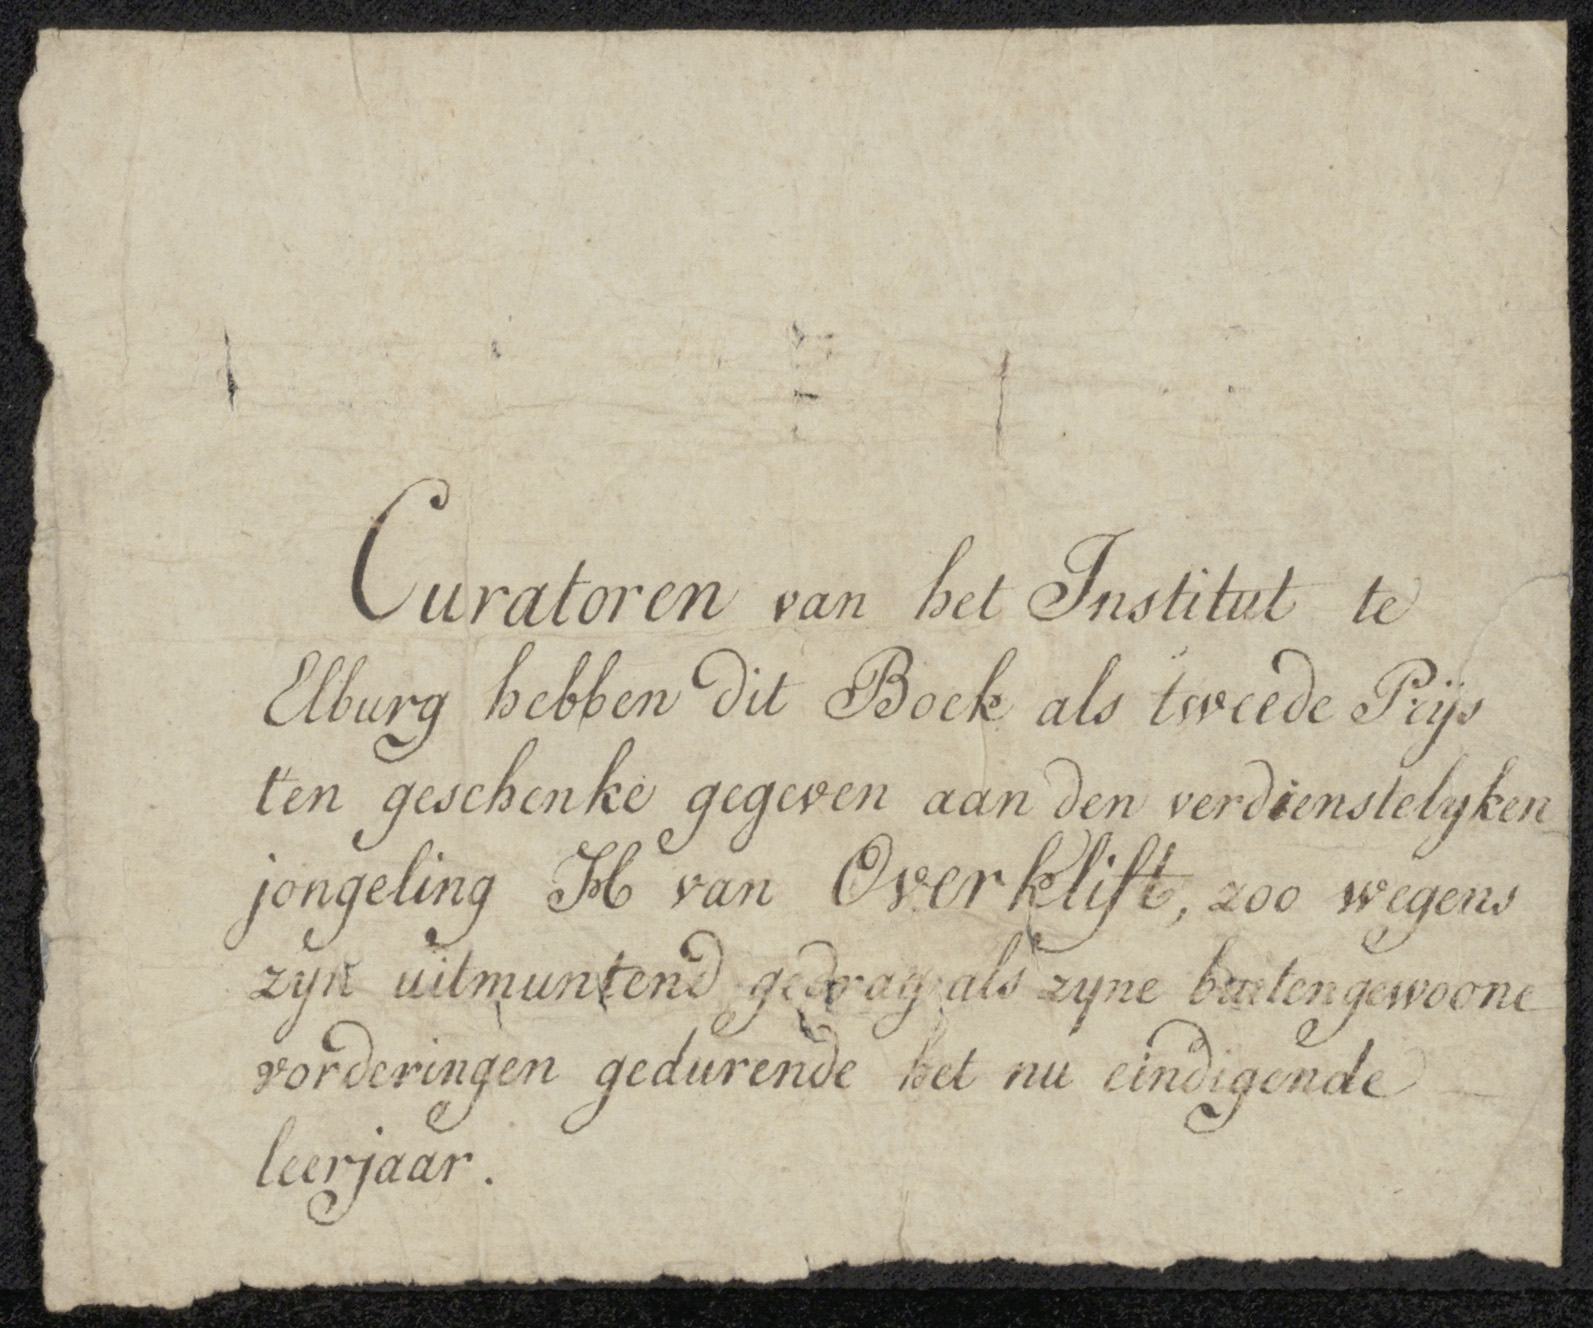 Curatoren van het Institut te
Elburg hebben dit Boek als tweede Prijs
ten geschenke gegeven aan den verdienstelyken
jongeling H van Overklift, zoo wegens
zyn uitmuntend gedrag als zyne buitengewoone
vorderingen gedurende het nu eindigende
leerjaar.